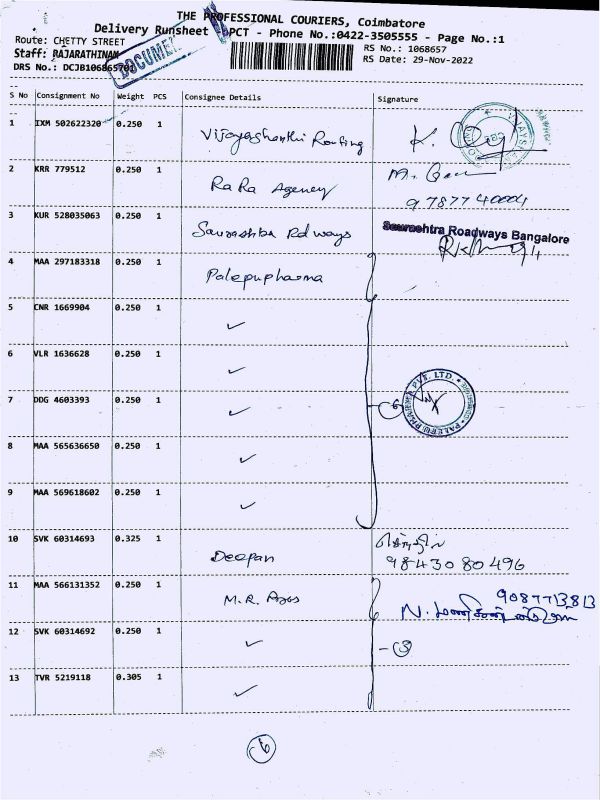 THE PROFESSIONAL COURIERS, Coimbatore
Delivery Runsheet - PCT - Phone No.:0422-3505555 - Page No.:1
Route: CHETTY STREET
RS No.: 1068657
Staff: RAJARATHINAM
RS Date: 29-Nov-2022
DRS No.: DCJB106865701
DOCUMENT
S No Consignment No Weight PCS Consignee Details Signature
1 IXM 502622320 0.250 1 Vijayashanthi Roofing
2 KRR 779512 0.250 1 RaRa Agency
9787740004
3 KUR 528035063 0.250 1 Saurashtra Rdways
Saurashtra Roadways Bangalore
4 MAA 297183318 0.250 1 Palepupharma
5 CNR 1669904 0.250 1 ✓
6 VLR 1636628 0.250 1 ✓
7 DDG 4603393 0.250 1 ✓ 6
PALEPU PHARMA PVT. LTD.
8 MAA 565636650 0.250 1 ✓
9 MAA 569618602 0.250 1 ✓
10 SVK 60314693 0.325 1 Deepan
98430 80496
11 MAA 566131352 0.250 1 M.R.
9087713813
N. மணிகண்டன்
12 SVK 60314692 0.250 1 ✓ - 3
13 TVR 5219118 0.305 1 ✓
6